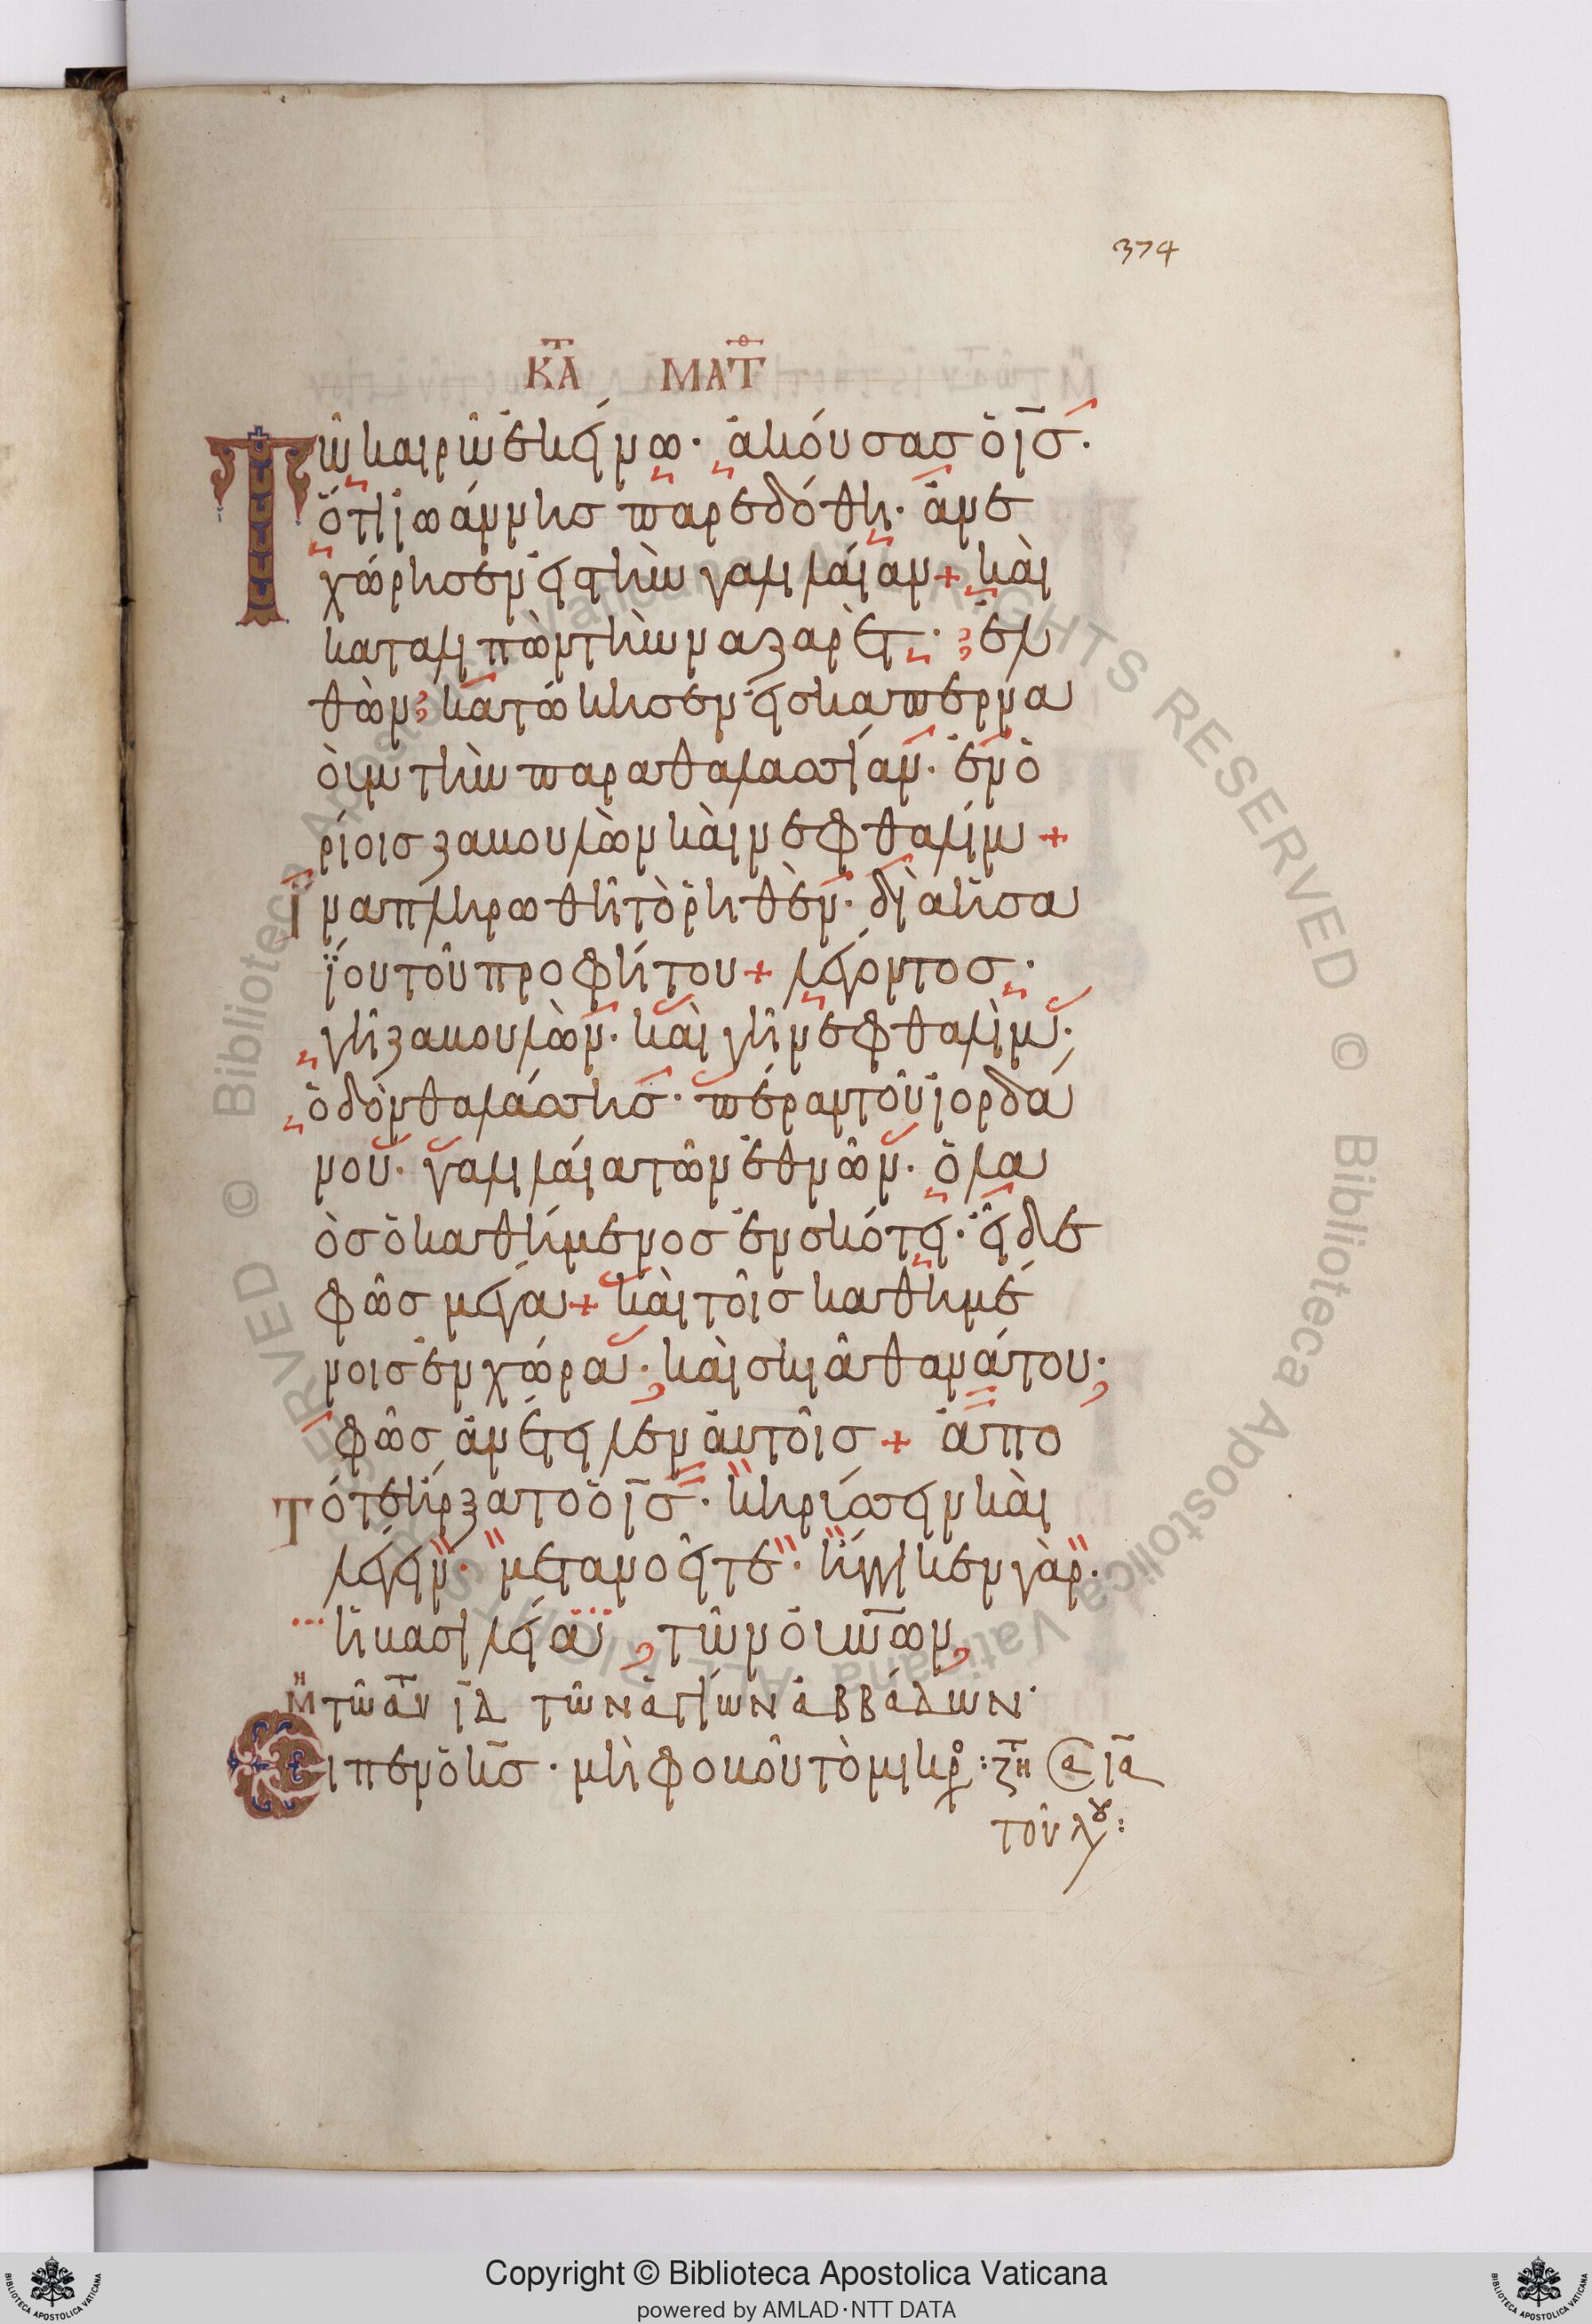 374
ΚΑΤ ΜΑΤΘ
Τῶ καιρῶ ἐκείνω· ἀκούσας ὁ ις·
ὅτι ἰωάννης παρεδόθη· ἀνε
χώρησεν εἰς τὴν γαλιλαίαν + καὶ
καταλιπὼν τὴν ναζαρὲτ· ἐλ
θὼν κατώκησεν εἰς καπερνα
οὺμ τὴν παραθαλασσίαν· ἐν ὁ
ρίοις ζαβουλὼν καὶ νεφθαλίμ +
ἵνα πληρωθῆ τὸ ῥηθὲν· διὰ ἡσα
ΐου τοῦ προφήτου + λέγοντος·
γῆ ζαβουλὼν· καὶ γῆ νεφθαλὶμ·
ὁδὸν θαλάσσης· πέραν τοῦ ἰορδά
νου· γαλιλαία τῶν ἐθνῶν· ὁ λα
ὸς ὁ καθήμενος ἐν σκότει· εἶδε
φῶς μέγα + καὶ τοῖς καθημέ
νοις ἐν χώρα· καὶ σκιᾶ θανάτου·
φῶς ἀνέτειλεν αὐτοῖς + ἀπὸ
τότε ἤρξατο ὁ ις· κηρύσσειν καὶ
λέγειν· μετανοεῖτε· ἤγγικεν γὰρ·
ἡ βασιλεία τῶν οὐνων
Μη τῶ αυτ ιδ τῶν ἁγίων ἀββάδων·
Εἶπεν ὁ κς· μὴ φοβοῦ τὸ μικρο: ζητ α ια
τοῦ λου:
Copyright © Biblioteca Apostolica Vaticana
powered by AMLAD·NTT DATA